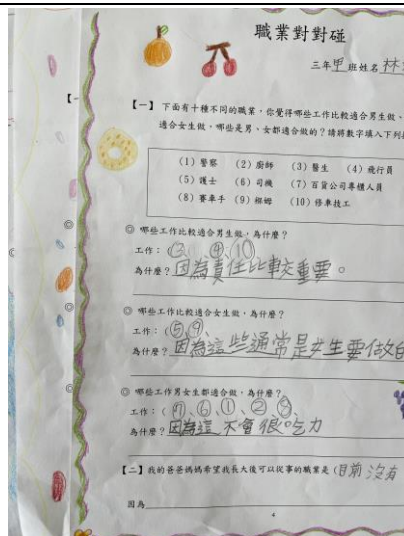 職業對對碰
三年甲班姓名林
【一】下面有十種不同的職業,你覺得哪些工作比較適合男生做、
適合女生做,哪些是男、女都適合做的?請將數字填入下列
(1) 警察 (2) 廚師 (3) 醫生 (4) 飛行員
(5) 護士 (6) 司機 (7) 百貨公司專櫃人員
(8) 賽車手 (9) 褓姆 (10) 修車技工
◎ 哪些工作比較適合男生做,為什麼?
工作:(③、④、⑩
為什麼?因為責任比較重要。
◎ 哪些工作比較適合女生做,為什麼?
工作:(⑤、⑨、
為什麼?因為這些通常是女生要做的
◎ 哪些工作男女生都適合做,為什麼?
工作:(⑦、⑥、①、②、⑧、
為什麼?因為這不會很吃力
【二】我的爸爸媽媽希望我長大後可以從事的職業是(目前沒有
因為
4